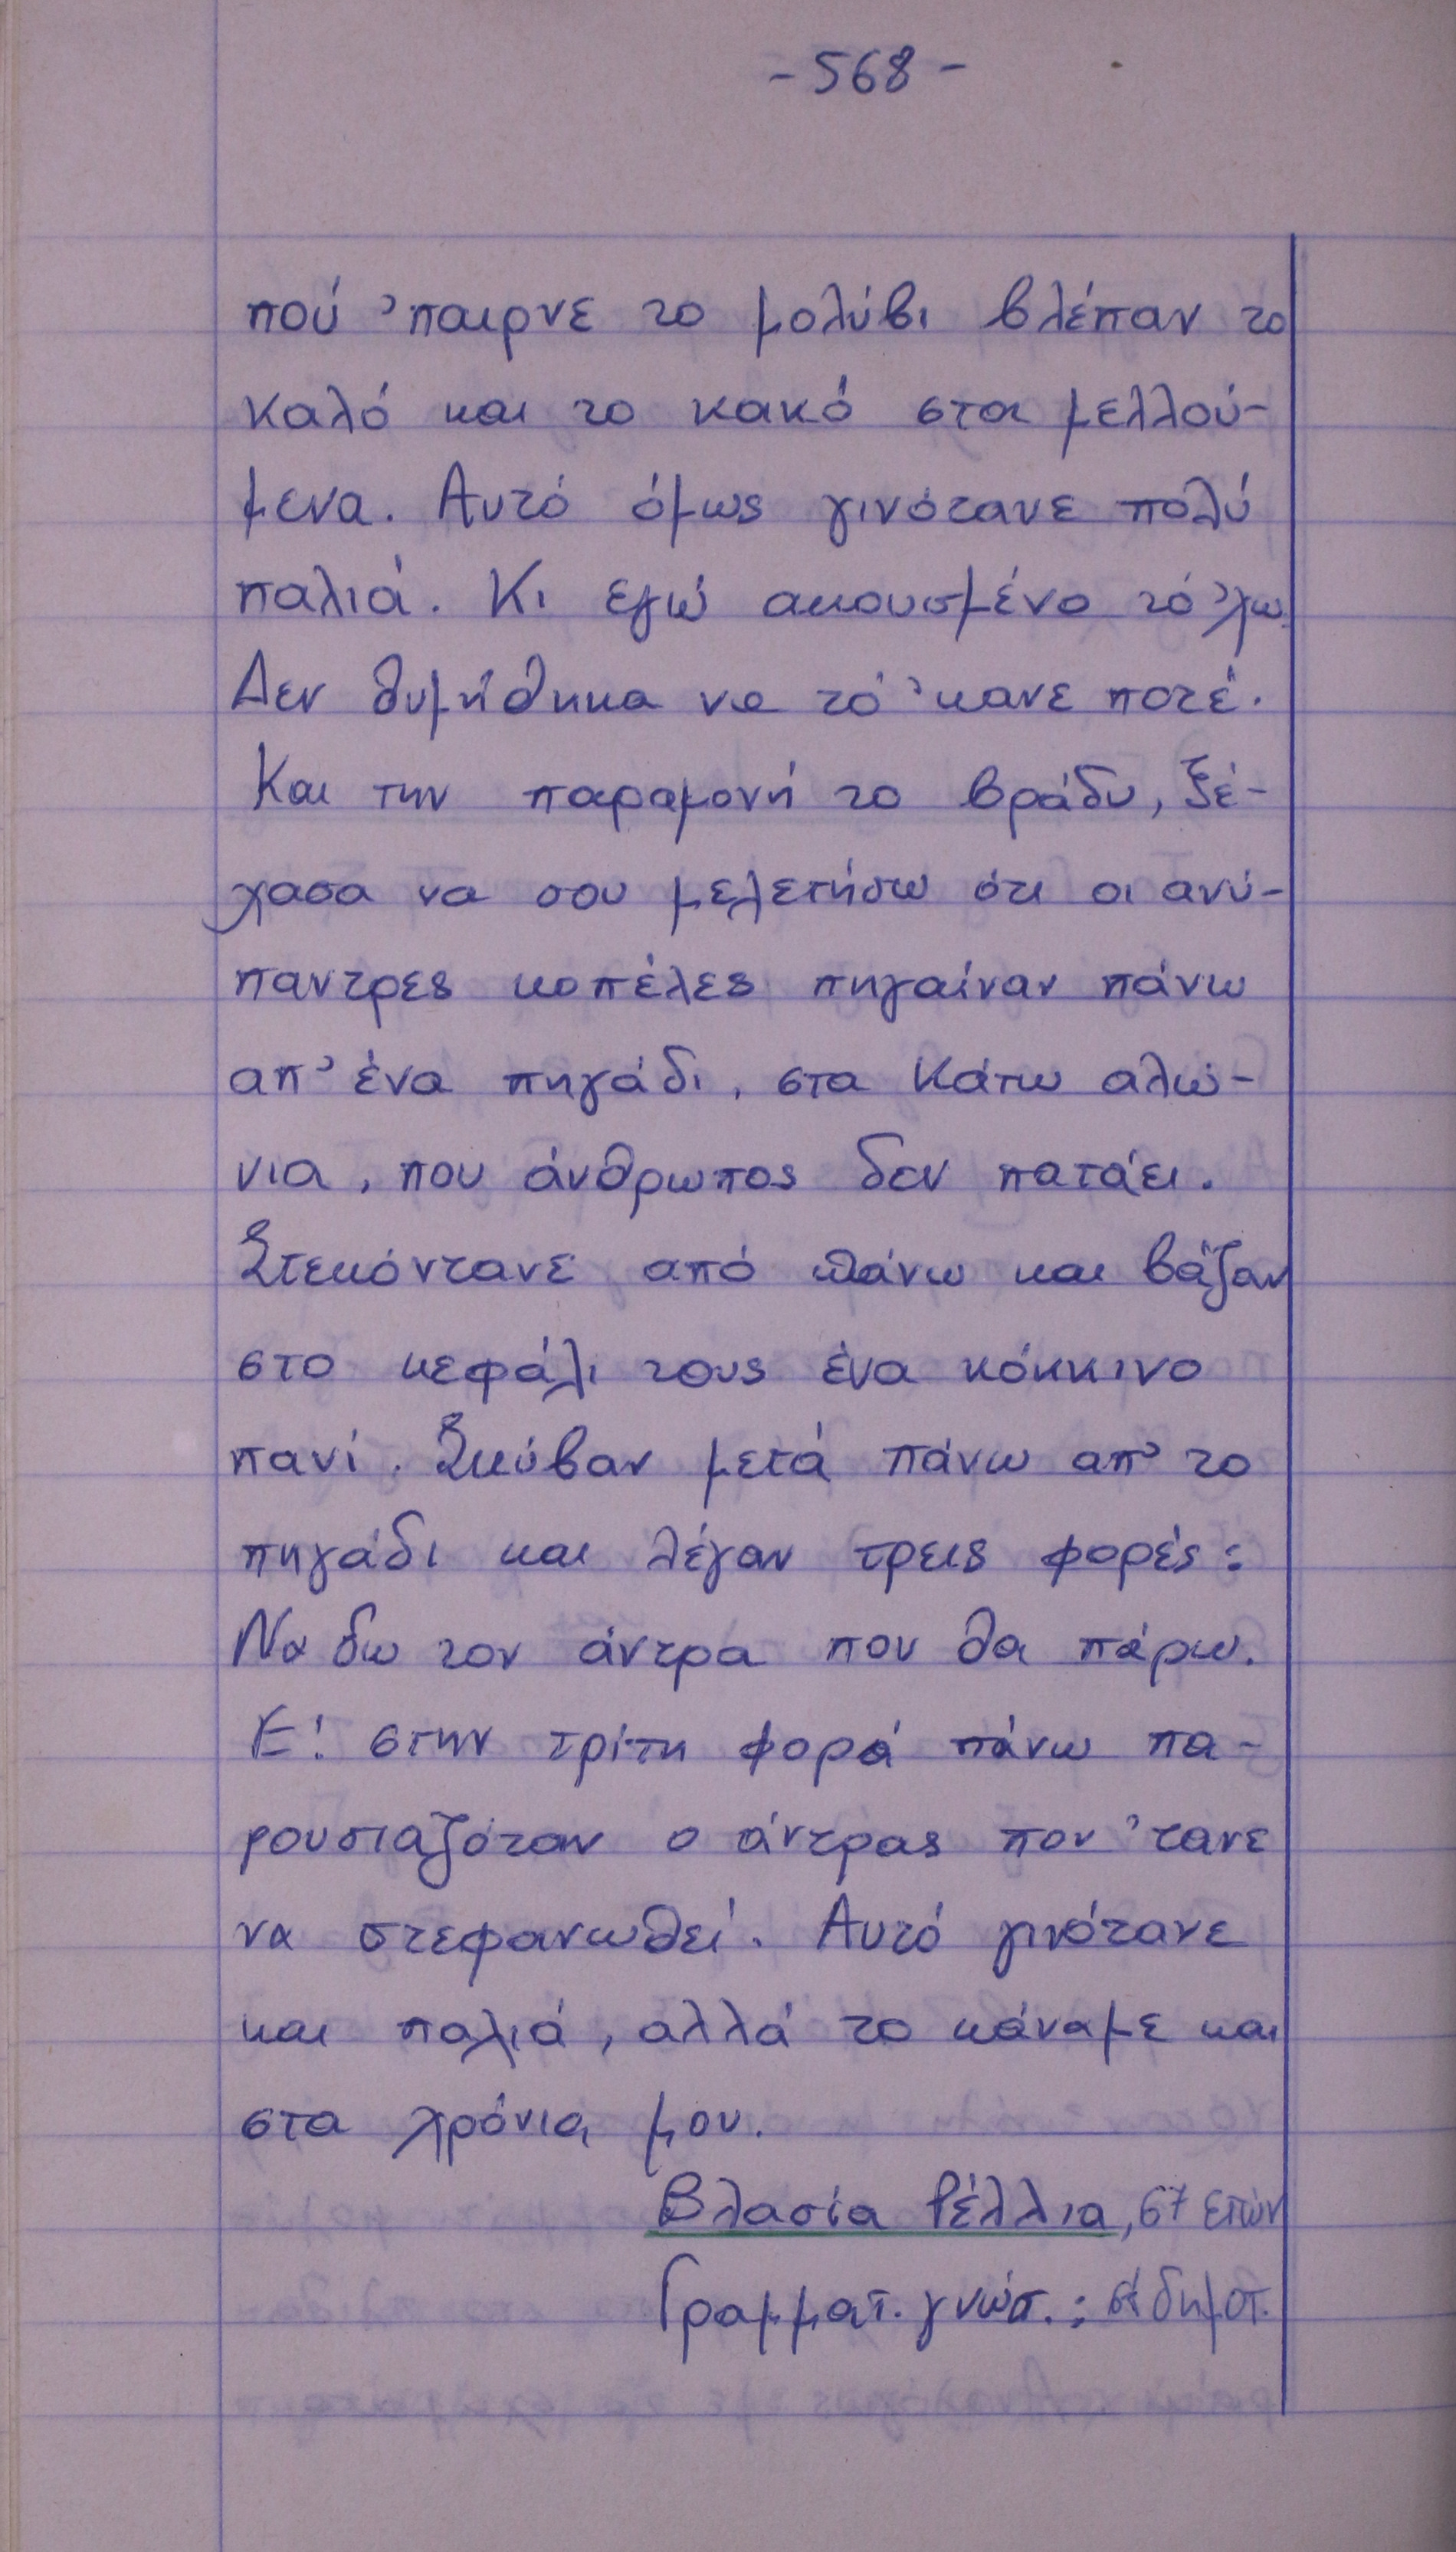 - 568 -
πού 'παιρνε το μολύβι βλέπαν το
καλό και το κακό στα μελλού-
μενα. Αυτό όμως γινότανε πολύ
παλιά. Κι εγώ ακουσμένο τό 'χω.
Δεν θυμήθηκα να τό 'κανε ποτέ.
Και την παραμονή το βράδυ, ξέ-
χασα να σου μελετήσω ότι οι ανύ-
παντρες κοπέλες πηγαίναν πάνω
απ' ένα πηγάδι, στα Κάτω αλώ-
νια, που άνθρωπος δεν πατάει.
Στεκόντανε από πάνω και βάζαν
στο κεφάλι τους ένα κόκκινο
πανί. Σκύβαν μετά πάνω απ' το
πηγάδι και λέγαν τρεις φορές:
Να δω τον άντρα που θα πάρω.
Ε! στην τρίτη φορά πάνω πα-
ρουσιαζόταν ο άντρας που 'τανε
να στεφανωθεί. Αυτό γινότανε
και παλιά, αλλά το κάναμε και
στα χρόνια μου.
Βλασία Ρέλλια, 67 ετών
Γραμματ. γνώσ. : δημοτ.